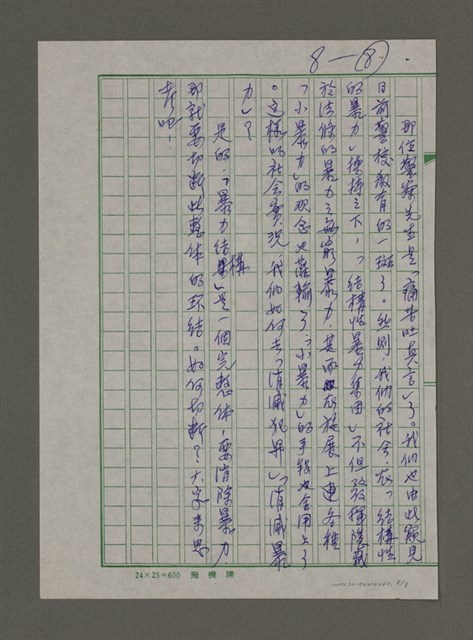 8—⑧.
那位警察先生是「痛苦吐真言」了。我們也由此窺見
目前警校教育的一斑了。然則，我們的社會，在「結構性
的暴力」保持之下，「結構性暴力集團」不但發揮
於法條的暴力之無窮暴力，甚而在施展上連各種
「小暴力」的觀念也灌輸了，「小暴力」的手段也全用上了
。這樣的社會實況，我們如何去「消滅犯罪」「消滅暴
力」？
是的，「暴力結構」是一個完整体，要消除暴力
那就要切斷此整体的环结。如何切斷？大家來思
考吧！
24×25=600 飛機牌